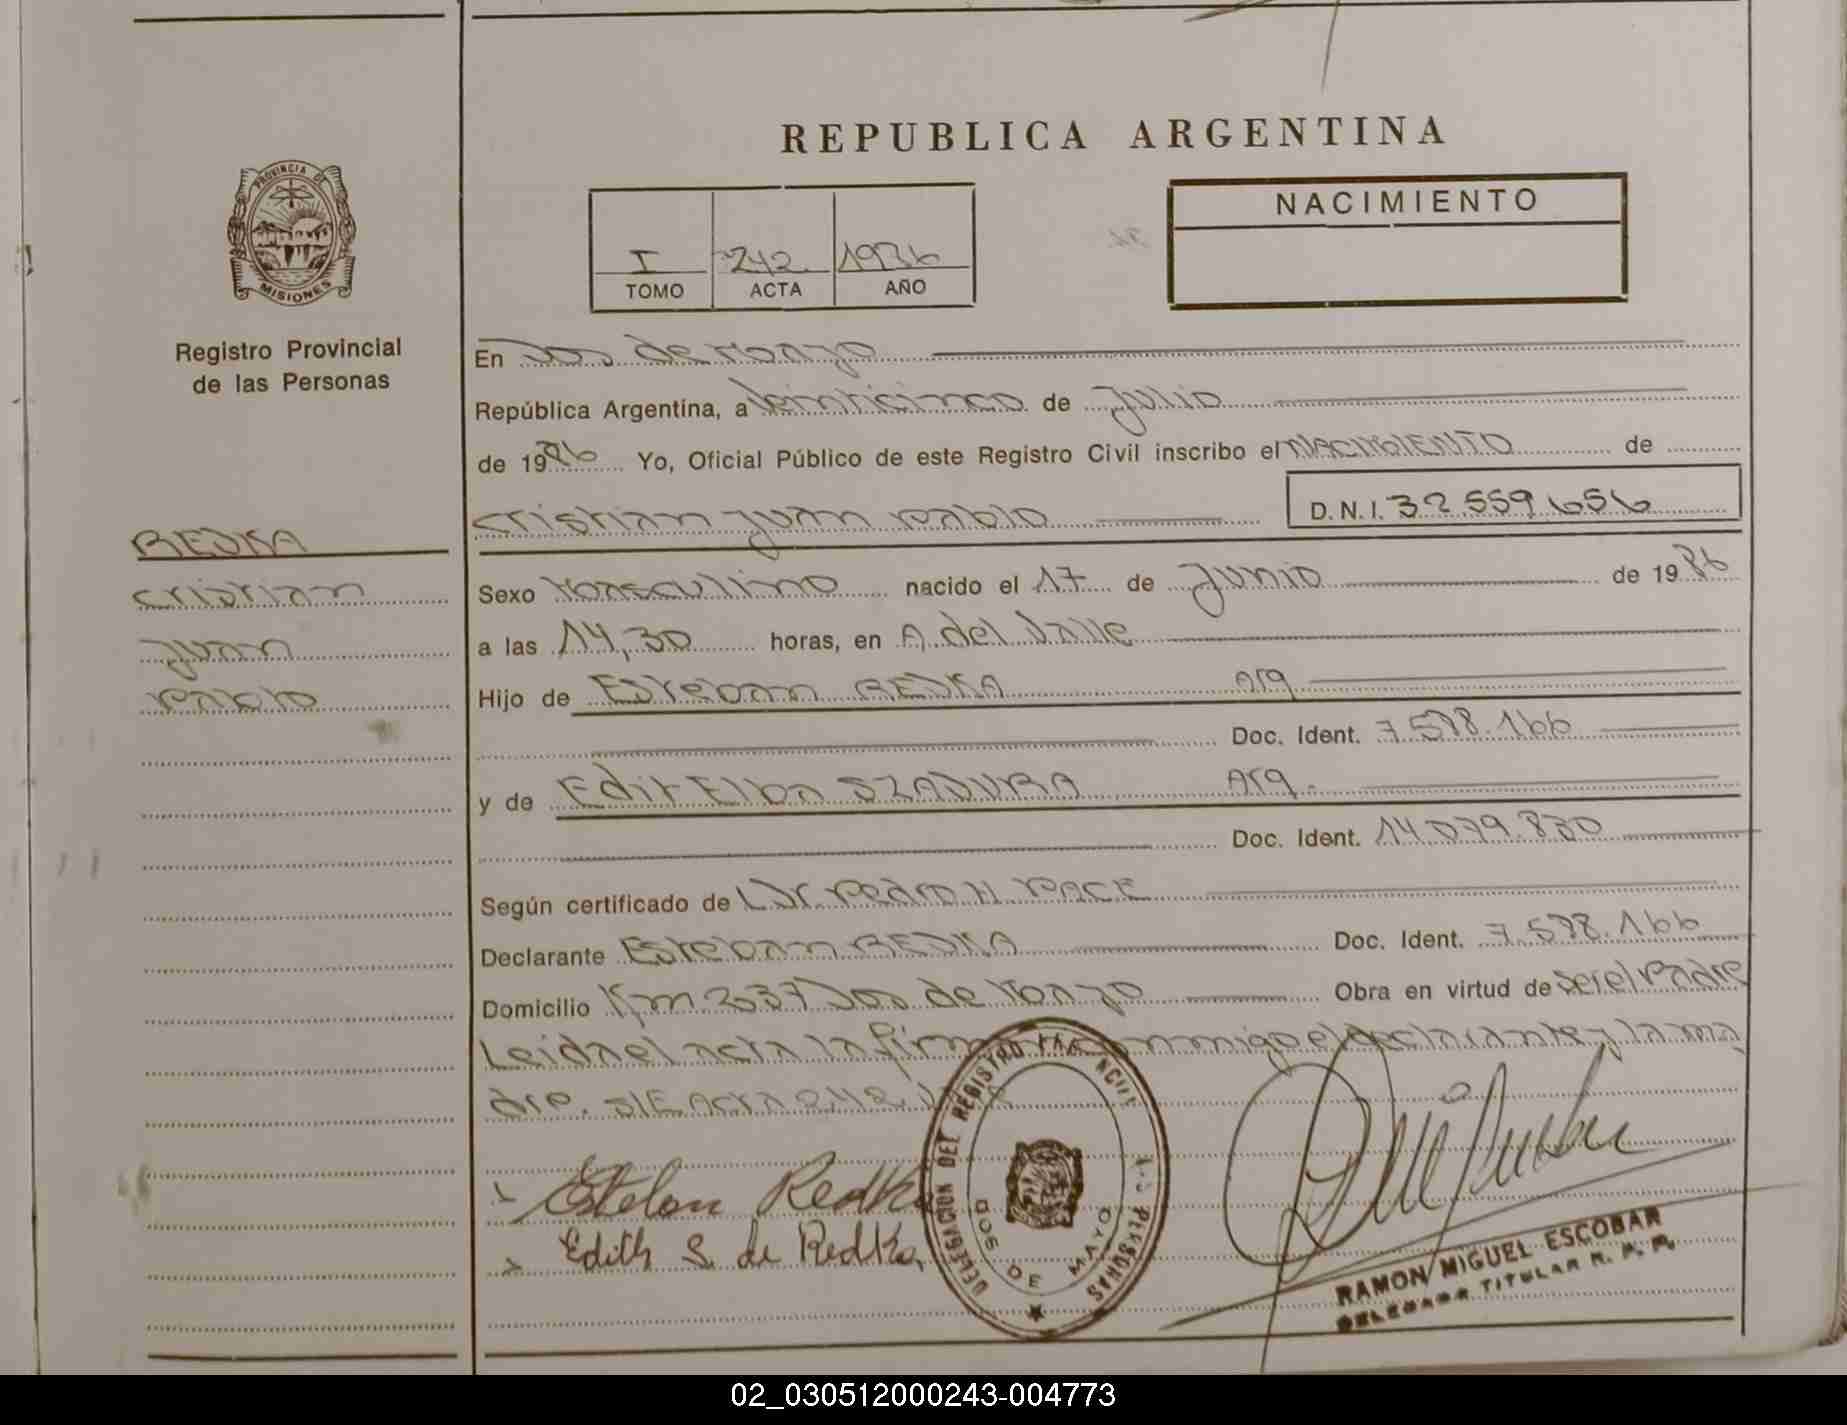 REPUBLICA ARGENTINA
PROVINCIA DE
MISIONES
Registro Provincial
de las Personas
I 242 1986
TOMO ACTA AÑO
NACIMIENTO
En Dos de Mayo
República Argentina, a Veinticinco de Julio
de 1986 Yo, Oficial Público de este Registro Civil inscribo el NACIMIENTO de
Cristian Juan Pablo D.N.I. 32.559.656
REDKA
Cristian
Juan
Pablo
Sexo Masculino nacido el 17 de Junio de 1986
a las 14,30 horas, en A. del Valle
Hijo de Esteban REDKA Arg
Doc. Ident. 7.578.166
y de Edit Elba SZADURA Arg.
Doc. Ident. 14.079.830
Según certificado de Dr. Pedro H. PACE
Declarante Esteban REDKA Doc. Ident. 7.578.166
Domicilio Km 237 Dos de Mayo Obra en virtud de ser el Padre
Leida el acta la firma conmigo el declarante y la ma
dre. S/E Acta 242. Vale
Esteban Redka
Edith S. de Redka
DELEGACION DEL REGISTRO PROVINCIAL DE LAS PERSONAS
DOS DE MAYO
RAMON MIGUEL ESCOBAR
DELEGADO TITULAR R. P. P.
02_030512000243-004773